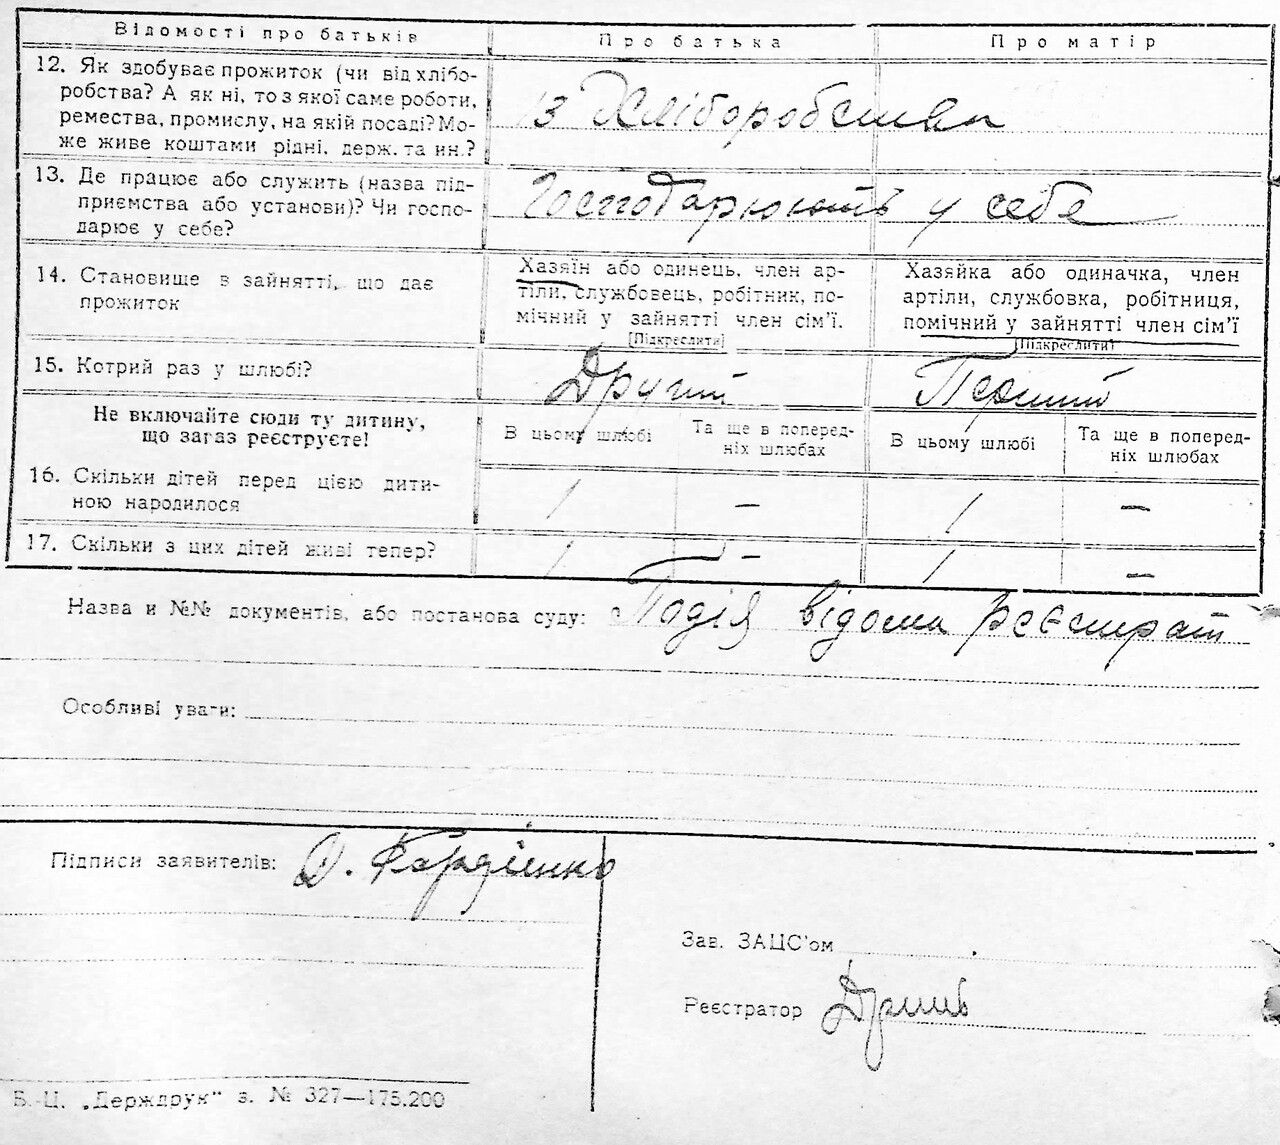 Відомості про батьків Про батька Про матір
12. Як здобуває прожиток (чи від хлібо-
робства? А як ні, то з якої саме роботи,
ремества, промислу, на якій посаді? Мо-
же живе коштами рідні, держ. та ин.?
із Хліборобства
13. Де працює або служить (назва під-
приємства або установи)? Чи госпо-
дарює у себе?
Господарюють у себе
14. Становище в зайнятті, що дає
прожиток
Хазяїн або одинець, член ар-
тіли, службовець, робітник, по-
мічний у зайнятті член сім'ї.
[Підкреслити]
Хазяйка або одиначка, член
артіли, службовка, робітниця,
помічний у зайнятті член сім'ї
[Підкреслити]
15. Котрий раз у шлюбі? Другий Перший
Не включайте сюди ту дитину,
що зараз реєструєте!
В цьому шлюбі
Та ще в поперед-
ніх шлюбах
В цьому шлюбі
Та ще в поперед-
ніх шлюбах
16. Скільки дітей перед цією дити-
ною народилося
1 — 1 —
17. Скільки з цих дітей живі тепер? 1 — 1 —
Назва и №№ документів, або постанова суду: Подія відома реєстрат
Особливі уваги:
Підписи заявителів: Д. Гордієнко
Зав. ЗАЦС'ом
Реєстратор
Б.-Ц. „Держдрук" з. № 327—175.200